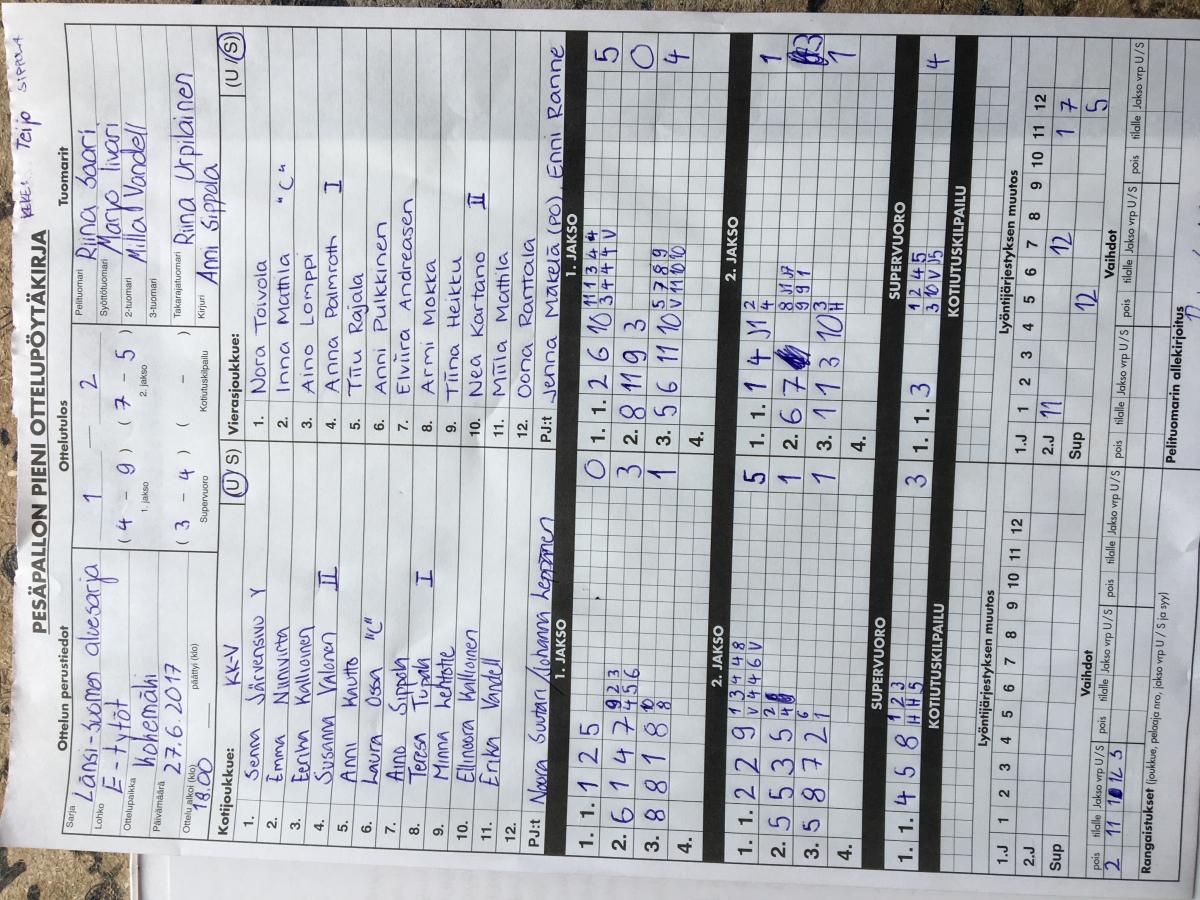 KKKE: Teijo SIPPOLA
PESÄPALLON PIENI OTTELUPÖYTÄKIRJA
Ottelun perustiedot
Ottelutulos
Tuomarit
Sarja Länsi-Suomen aluesarja
Lohko E-tytöt
Ottelupaikka Kokemäki
Päivämäärä 27.6.2017
Ottelu alkoi (klo) 18.00 päättyi (klo)
1 — 2
( 4 - 9 ) ( 7 - 5 )
1. jakso 2. jakso
( 3 - 4 ) ( - )
Supervuoro Kotiutuskilpailu
Pelituomari Riina Saari
Syöttötuomari Marjo Iivari
2-tuomari Milla Vandell
3-tuomari
Takarajatuomari Riina Urpilainen
Kirjuri Anni Sippola
Kotijoukkue: KK-V (U/S)
1. Senna Järvensivu Y
2. Emma Niinivirta
3. Eerika Kallioinen
4. Susanna Valonen II
5. Anni Kautto
6. Laura Ossa "C"
7. Aino Sippola
8. Teresa Tupala I
9. Minna Lehtotie
10. Ellinoora Kallioinen
11. Erika Vandell
12.
PJ:t Noora Suutari / Johanna Leppänen
Vierasjoukkue: (U/S)
1. Nora Toivola
2. Inna Mattila "C"
3. Aino Lomppi
4. Anna Palmroth I
5. Tiiu Rajala
6. Anni Pulkkinen
7. Elviira Andreasen
8. Armi Mokka
9. Tiina Heikku
10. Nea Kartano II
11. Miila Mattila
12. Oona Ranttala
PJ:t Jenna Mäkelä (PO), Enni Ranne
1. JAKSO
1. 1. 1 2 5 0
2. 6 1 4 7 9 2 3 4 5 6 3
3. 8 8 1 8 10 8 1
4.
1. JAKSO
1. 1. 2 6 10 11 1 3 4 3 4 4 4 V 5
2. 8 11 9 3 0
3. 5 6 11 10 5 7 8 9 V 11 10 10 4
4.
2. JAKSO
1. 1. 2 2 9 1 3 4 4 8 V 4 4 6 V 5
2. 5 5 3 5 2 4 1
3. 5 8 7 2 6 1 1
4.
2. JAKSO
1. 1. 1 4 2 4 1
2. 6 7 3
3. 1 1 3 10 3 H 1
4.
SUPERVUORO
1. 1. 4 5 8 1 2 3 H H 5 3
SUPERVUORO
1. 1. 3 1 2 4 5 3 10 V 4
KOTIUTUSKILPAILU
KOTIUTUSKILPAILU
Lyöntijärjestyksen muutos
1 2 3 4 5 6 7 8 9 10 11 12
1.J
2.J
Sup
Lyöntijärjestyksen muutos
1 2 3 4 5 6 7 8 9 10 11 12
1.J
2.J 11 12 1 7
Sup 12 5
Vaihdot
pois tilalle Jakso vrp U/S pois tilalle Jakso vrp U/S pois tilalle Jakso vrp U/S
2 11
Vaihdot
pois tilalle Jakso vrp U/S pois tilalle Jakso vrp U/S pois tilalle Jakso vrp U/S
Rangaistukset (joukkue, pelaaja nro, jakso vrp U/S ja syy)
Pelituomarin allekirjoitus